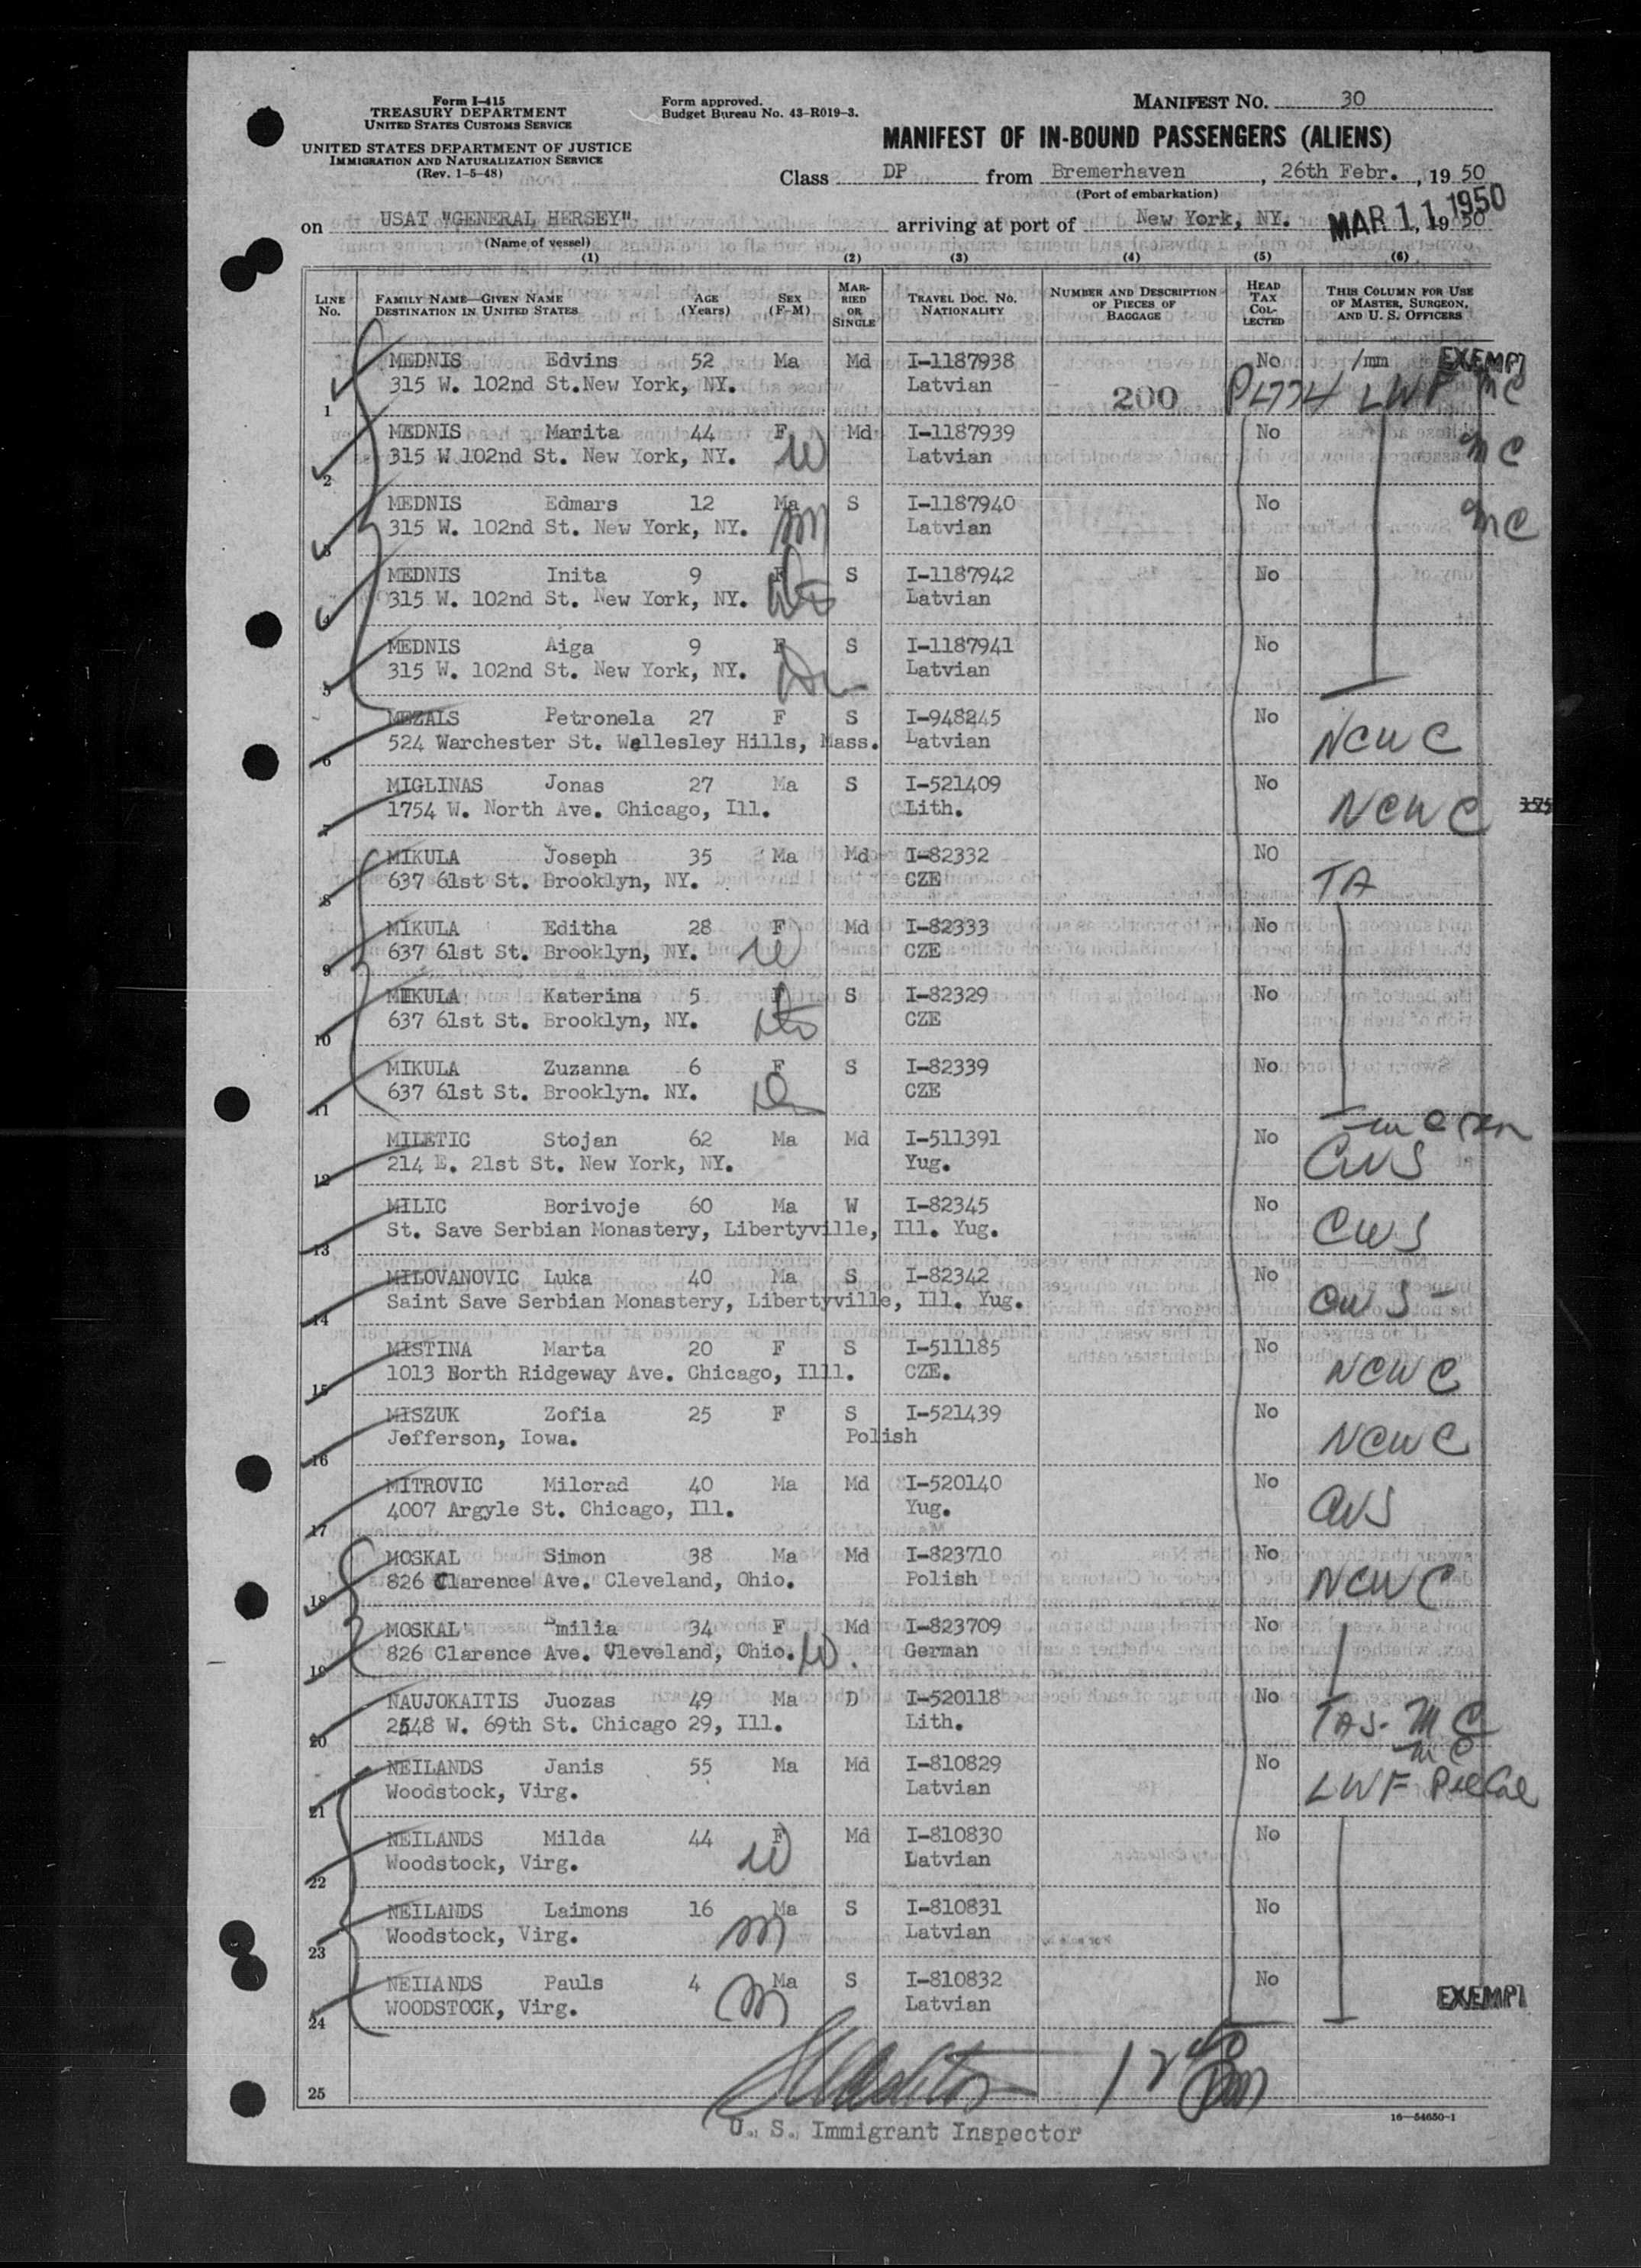 Form I-415
TREASURY DEPARTMENT
UNITED STATES CUSTOMS SERVICE
UNITED STATES DEPARTMENT OF JUSTICE
IMMIGRATION AND NATURALIZATION SERVICE
(Rev. 1-5-48)
Form approved.
Budget Bureau No. 43-R019-3.
MANIFEST NO. 30
MANIFEST OF IN-BOUND PASSENGERS (ALIENS)
Class DP from Bremerhaven, 26th Febr., 19 50
(Port of embarkation)
on USAT "GENERAL HERSEY" arriving at port of New York, NY. MAR 11 1950, 19 50
(Name of vessel)
(1) (2) (3) (4) (5) (6)
LINE NO. FAMILY NAME—GIVEN NAME DESTINATION IN UNITED STATES AGE (Years) SEX (F-M) MARRIED OR SINGLE TRAVEL DOC. NO. NATIONALITY NUMBER AND DESCRIPTION OF PIECES OF BAGGAGE HEAD TAX COLLECTED THIS COLUMN FOR USE OF MASTER, SURGEON, AND U. S. OFFICERS
MEDNIS Edvins 52 Ma Md I-1187938 No EXEMPT
1 315 W. 102nd St.New York, NY. Latvian 200 LWF MC
MEDNIS Marita 44 F Md I-1187939 No MC
2 315 W 102nd St. New York, NY. W Latvian
MEDNIS Edmars 12 Ma S I-1187940 No MC
3 315 W. 102nd St. New York, NY. m Latvian
MEDNIS Inita 9 F S I-1187942 No
4 315 W. 102nd St. New York, NY. Latvian
MEDNIS Aiga 9 F S I-1187941 No
5 315 W. 102nd St. New York, NY. Latvian
MEZALS Petronela 27 F S I-948245 No NCWC
6 524 Warchester St. Wellesley Hills, Mass. Latvian
MIGLINAS Jonas 27 Ma S I-521409 No NCWC
7 1754 W. North Ave. Chicago, Ill. Lith.
MIKULA Joseph 35 Ma Md I-82332 NO TA
8 637 61st St. Brooklyn, NY. CZE
MIKULA Editha 28 F Md I-82333 No
9 637 61st St. Brooklyn, NY. W CZE
MIKULA Katerina 5 F S I-82329 No
10 637 61st St. Brooklyn, NY. CZE
MIKULA Zuzanna 6 F S I-82339 No
11 637 61st St. Brooklyn. NY. CZE
MILETIC Stojan 62 Ma Md I-511391 No CWS
12 214 E. 21st St. New York, NY. Yug.
MILIC Borivoje 60 Ma W I-82345 No CWS
13 St. Save Serbian Monastery, Libertyville, Ill. Yug.
MILOVANOVIC Luka 40 Ma S I-82342 No CWS
14 Saint Save Serbian Monastery, Libertyville, Ill. Yug.
MISTINA Marta 20 F S I-511185 No NCWC
15 1013 North Ridgeway Ave. Chicago, Illl. CZE.
MISZUK Zofia 25 F S I-521439 No NCWC
16 Jefferson, Iowa. Polish
MITROVIC Milorad 40 Ma Md I-520140 No CWS
17 4007 Argyle St. Chicago, Ill. Yug.
MOSKAL Simon 38 Ma Md I-823710 No NCWC
18 826 Clarence Ave. Cleveland, Ohio. Polish
MOSKAL Emilia 34 F Md I-823709 No
19 826 Clarence Ave. Cleveland, Ohio. W. German
NAUJOKAITIS Juozas 49 Ma D I-520118 No TAS- MC
20 2548 W. 69th St. Chicago 29, Ill. Lith.
NEILANDS Janis 55 Ma Md I-810829 No MC
21 Woodstock, Virg. Latvian LWF
NEILANDS Milda 44 F Md I-810830 No
22 Woodstock, Virg. W Latvian
NEILANDS Laimons 16 Ma S I-810831 No
23 Woodstock, Virg. m Latvian
NEILANDS Pauls 4 Ma S I-810832 No EXEMPT
24 WOODSTOCK, Virg. m Latvian
25
16—54650-1
U. S. Immigrant Inspector